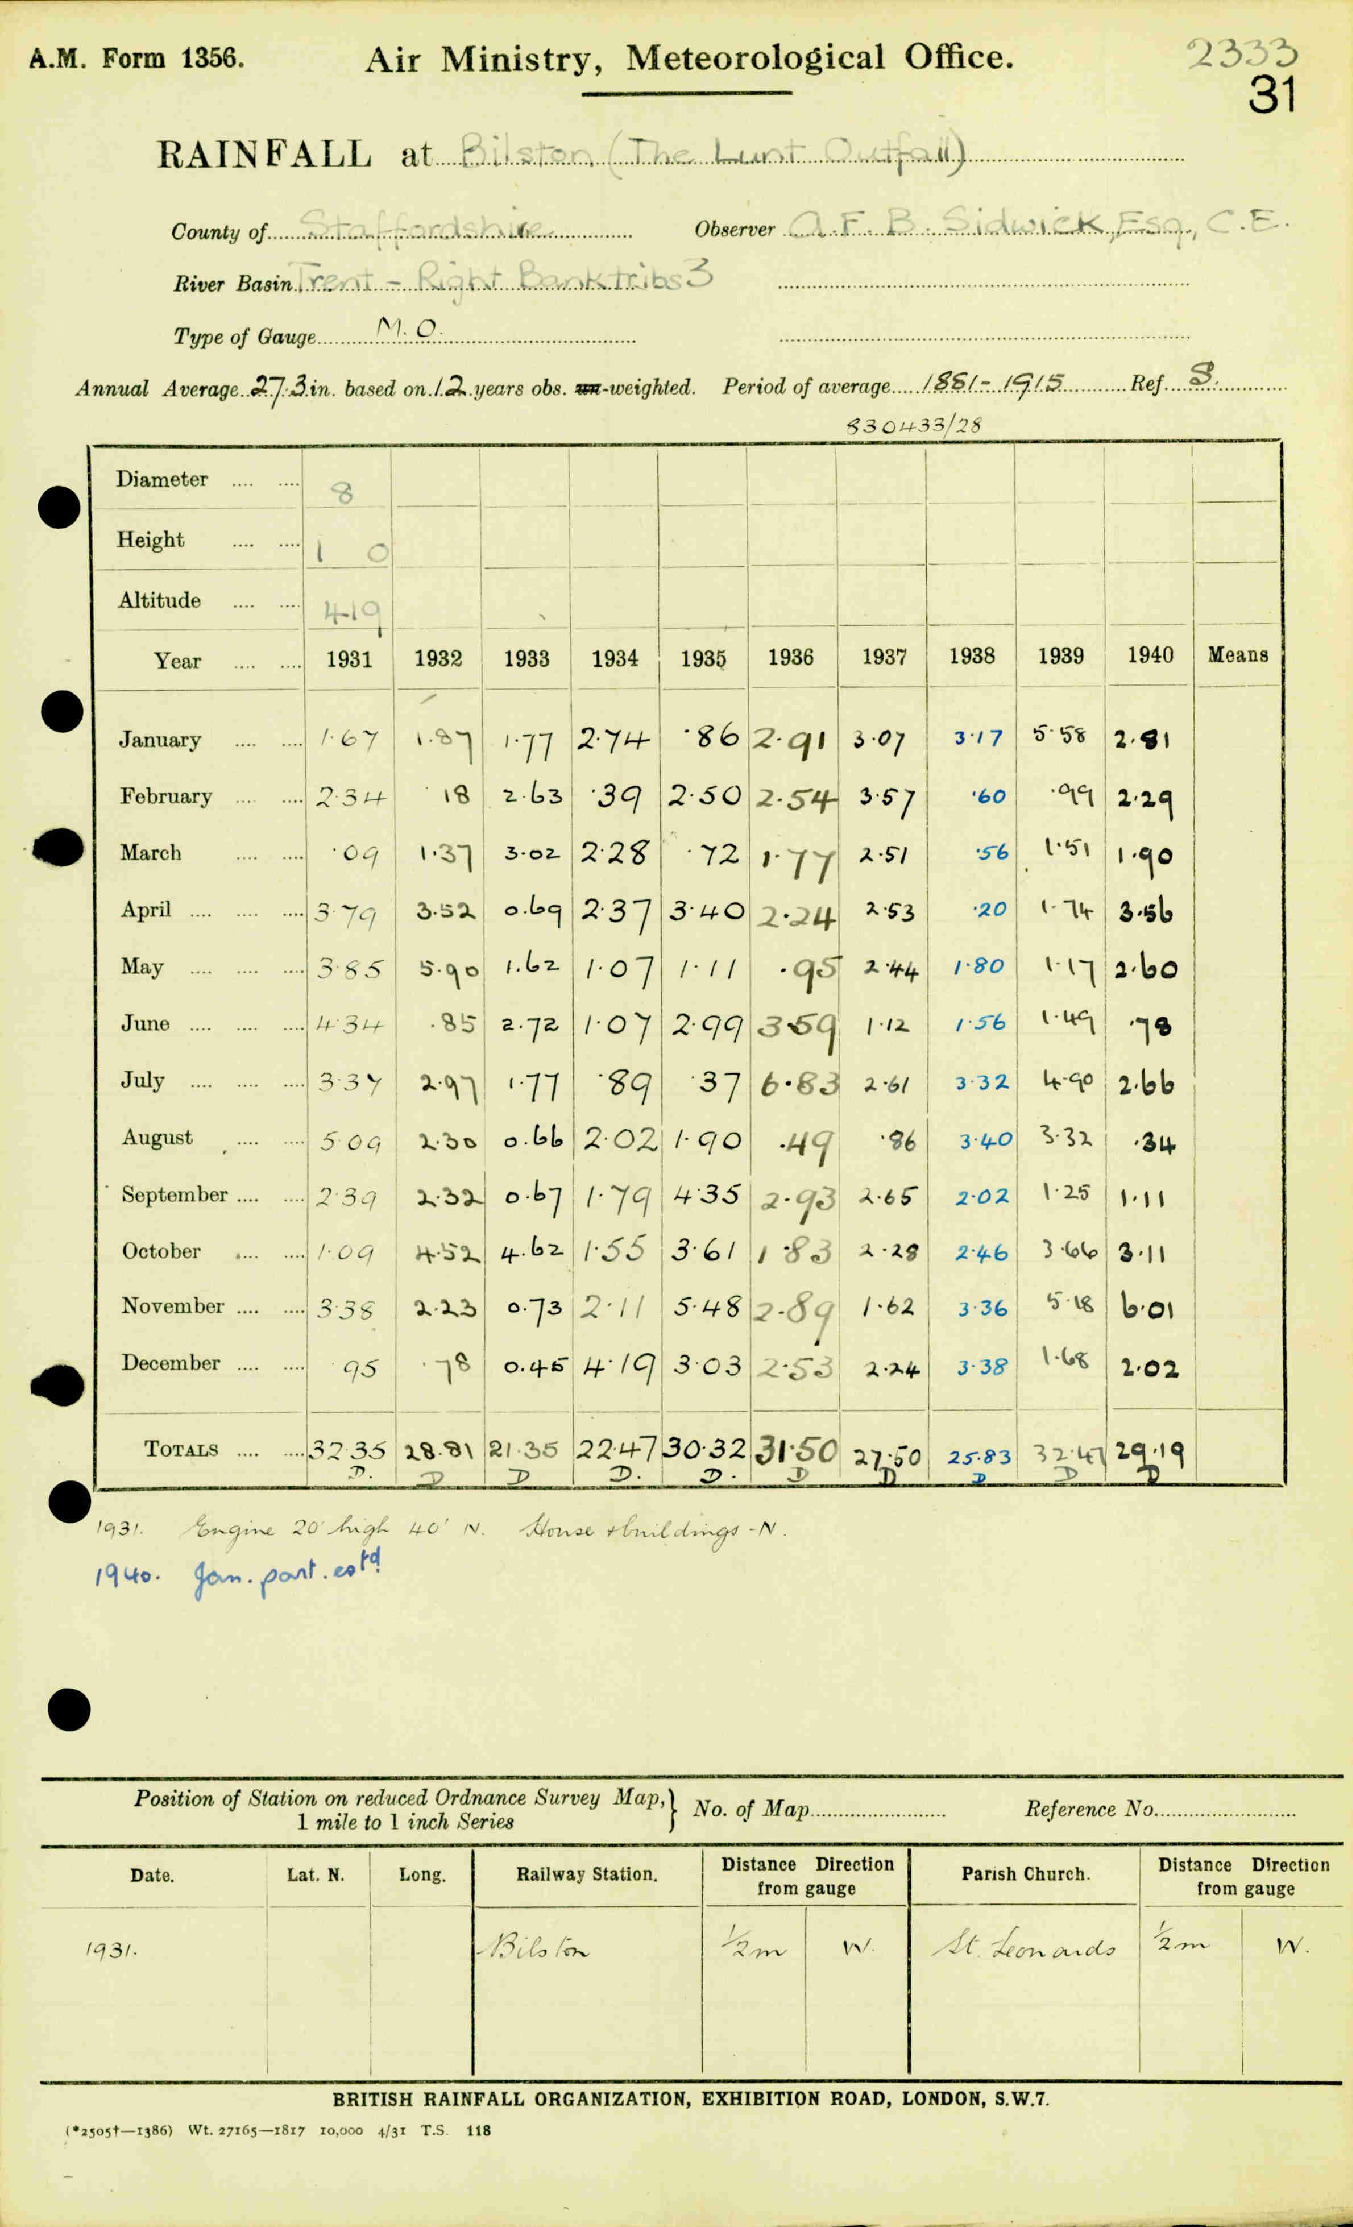 A.M. Form 1356. Air Ministry, Meteorological Office. 2333
31
RAINFALL at Bilston (The Lunt Outfall)
County of Staffordshire Observer A. F. B. Sidwick, Esq., C.E.
River Basin Trent - Right Bank tribs 3
Type of Gauge M.O.
Annual Average 27.3 in. based on 12 years obs. un-weighted. Period of average 1881-1915 Ref. S.
830433/28
Diameter .... .... 8
Height .... .... 1 0
Altitude .... .... 419
Year .... .... 1931 1932 1933 1934 1935 1936 1937 1938 1939 1940 Means
January .... .... 1.67 1.87 1.77 2.74 .86 2.91 3.07 3.17 5.58 2.81
February .... .... 2.34 .18 2.63 .39 2.50 2.54 3.57 .60 .99 2.29
March .... .... .09 1.37 3.02 2.28 .72 1.77 2.51 .56 1.51 1.90
April .... .... .... 3.79 3.52 0.69 2.37 3.40 2.24 2.53 .20 1.74 3.56
May .... .... .... 3.85 5.90 1.62 1.07 1.11 .95 2.44 1.80 1.17 2.60
June .... .... .... 4.34 .85 2.72 1.07 2.99 3.59 1.12 1.56 1.49 .78
July .... .... .... 3.37 2.97 1.77 .89 .37 6.83 2.61 3.32 4.90 2.66
August .... .... 5.09 2.30 0.66 2.02 1.90 .49 .86 3.40 3.32 .34
September .... .... 2.39 2.32 0.67 1.79 4.35 2.93 2.65 2.02 1.25 1.11
October .... .... 1.09 4.52 4.62 1.55 3.61 1.83 2.28 2.46 3.66 3.11
November .... .... 3.38 2.23 0.73 2.11 5.48 2.89 1.62 3.36 5.18 6.01
December .... .... .95 .78 0.45 4.19 3.03 2.53 2.24 3.38 1.68 2.02
TOTALS .... .... 32.35 28.81 21.35 22.47 30.32 31.50 27.50 25.83 32.47 29.19
D. D D D. D. D D D D D
1931. Engine 20' high 40' N. House & buildings - N.
1940. Jan. part. estd
Position of Station on reduced Ordnance Survey Map, 1 mile to 1 inch Series } No. of Map Reference No.
Date. Lat. N. Long. Railway Station. Distance Direction from gauge Parish Church. Distance Direction from gauge
1931. Bilston ½m W. St. Leonards ½m W.
BRITISH RAINFALL ORGANIZATION, EXHIBITION ROAD, LONDON, S.W.7.
(*2505†—1386) Wt. 27165—1817 10,000 4/31 T.S. 118